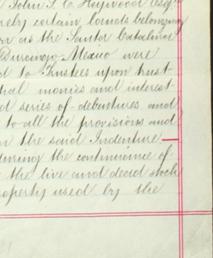 John T. C. Heywood Esqr
certain lands belonging
as the Santor Catalina
Durango Mexico were
to trustees upon trust
monies and interest
series of debentures and
to all the provisions and
the said Indenture
during the continuance of
the live and dead stock
property used by the